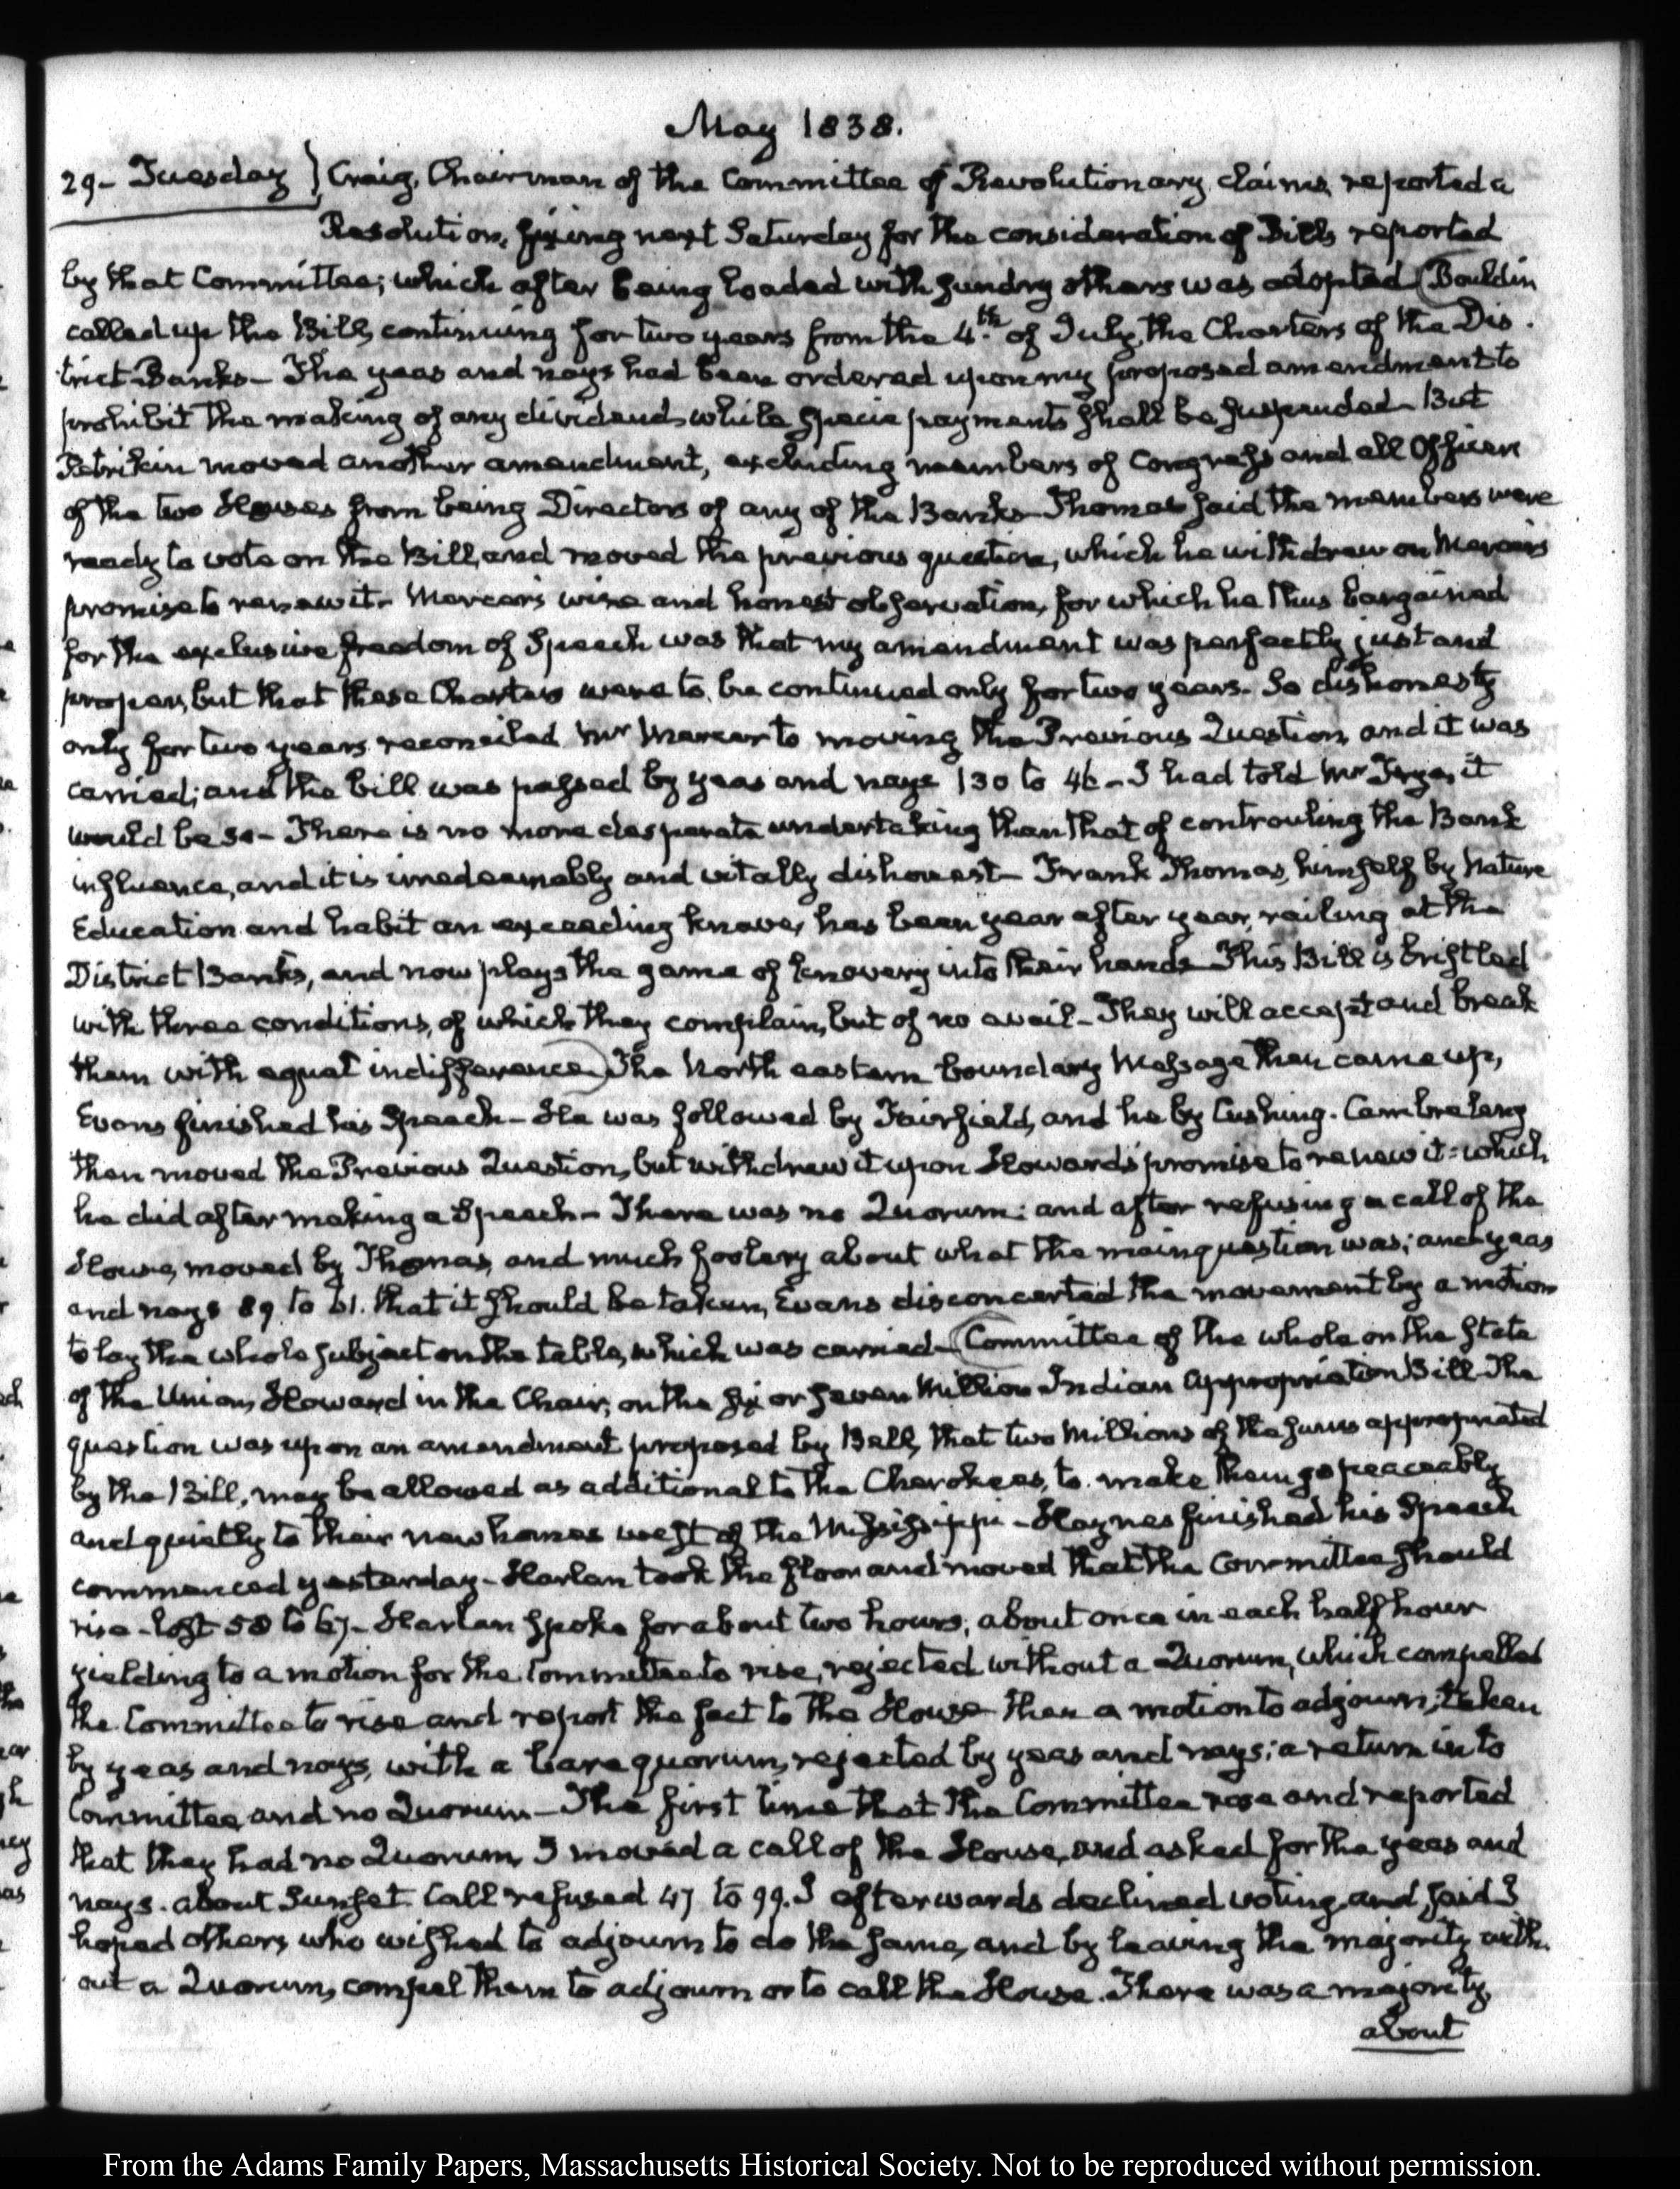 May 1838.
29- Tuesday } Craig, Chairman of the Committee of Revolutionary claims, reported a
Resolution, fixing next Saturday for the consideration of Bills reported
by that Committee; which after being loaded with sundry others was adopted (Bouldin
called up the Bill, continuing for two years from the 4th. of July, the Charters of the Dis-
trict Banks- The yeas and nays had been ordered upon my proposed amendment to
prohibit the making of any dividend, while specie payments shall be suspended- But
Petrikin moved another amendment, excluding members of Congress and all Officers
of the two Houses from being Directors of any of the Banks- Thomas said the members were
ready to vote on the Bill, and moved the previous question, which he withdrew on Mercer's
promise to renew it- Mercer's wise and honest observation, for which he thus bargained
for the exclusive freedom of Speech was that my amendment was perfectly just and
proper, but that these Charters were to be continued only for two years- So dishonesty
only for two years reconciled Mr Mercer to moving the Previous Question, and it was
carried; and the bill was passed by yeas and nays 130 to 46- I had told Mr Frye, it
would be so- There is no more desperate undertaking than that of controuling the Bank
influence, and it is irredeemably and vitally dishonest- Frank Thomas, himself by Nature
Education and habit an exceeding knave, has been year after year, railing at the
District Banks, and now plays the game of knavery into their hands- This Bill is bristled
with three conditions, of which they complain, but of no avail- They will accept and break
them with equal indifference) The North eastern boundary Message then came up,
Evans finished his Speech- He was followed by Fairfield, and he by Cushing. Cambreleng
then moved the Previous Question, but withdrew it upon Howard's promise to renew it: which
he did after making a Speech- There was no Quorum: and after refusing a call of the
House, moved by Thomas, and much foolery about what the main question was; and yeas
and nays 89 to 61. that it should be taken, Evans disconcerted the movement by a motion
to lay the whole subject on the table, which was carried- (Committee of the whole on the state
of the Union, Howard in the Chair; on the six or seven Million Indian Appropriation Bill- The
question was upon an amendment proposed by Bell, that two Millions of the sums appropriated
by the Bill, may be allowed as additional to the Cherokees, to make them go peaceably
and quietly to their new homes west of the Mississippi- Haynes finished his Speech
commenced yesterday- Harlan took the floor and moved that the Committee should
rise- lost 58 to 67- Harlan spoke for about two hours; about once in each half hour
yielding to a motion for the Committee to rise, rejected without a Quorum, which compelled
the Committee to rise and report the fact to the House- then a motion to adjourn, taken
by yeas and nays, with a bare quorum, rejected by yeas and nays; a return into
Committee, and no Quorum- The first time that the Committee rose and reported
that they had no Quorum, I moved a call of the House, and asked for the yeas and
nays. about Sunset. Call refused 47 to 99. I afterwards declined voting, and said I
hoped others, who wished to adjourn to do the same, and by leaving the majority with-
out a Quorum, compel them to adjourn or to call the House. There was a majority,
about
From the Adams Family Papers, Massachusetts Historical Society. Not to be reproduced without permission.